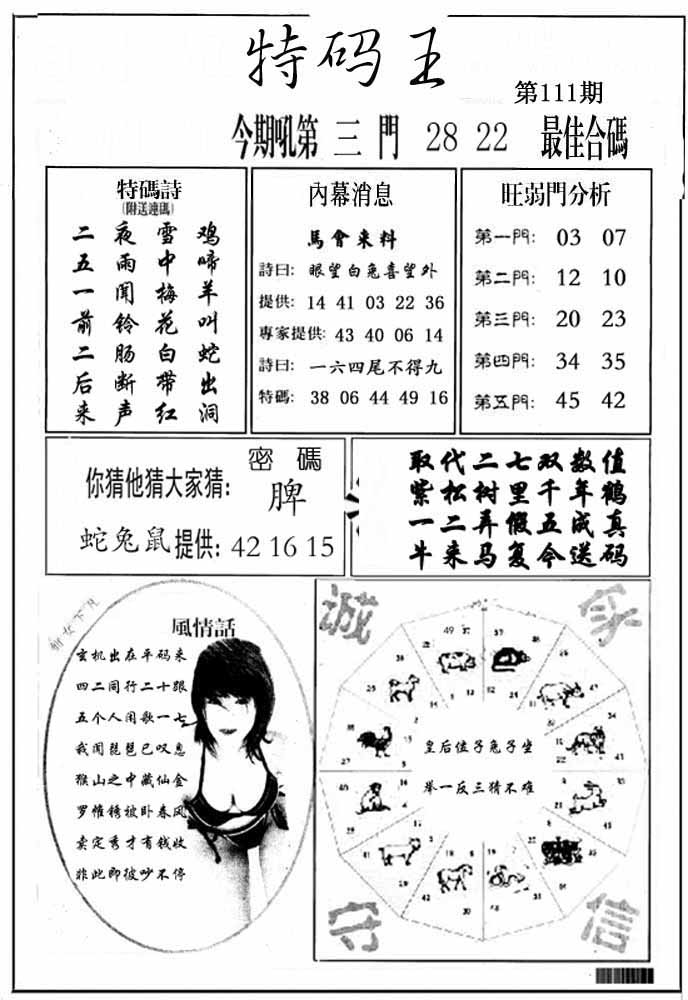 特码王
第111期
今期吼第 三 門 28 22 最佳合碼
特碼詩
(附送連碼)
二 夜 雪 鸡
五 雨 中 啼
一 闻 梅 羊
前 铃 花 叫
二 肠 白 蛇
后 断 带 出
来 声 红 洞
內幕消息
馬會来料
詩曰: 眼望白兔喜望外
提供: 14 41 03 22 36
專家提供: 43 40 06 14
詩曰: 一六四尾不得九
特碼: 38 06 44 49 16
旺弱門分析
第一門: 03 07
第二門: 12 10
第三門: 20 23
第四門: 34 35
第五門: 45 42
密碼
你猜他猜大家猜: 脾
蛇兔鼠提供: 42 16 15
取代二七双数值
紫松树里千年鹤
一二弄假五成真
牛来马复今送码
風情話
玄机出在平码来
四二同行二十跟
五个人闲歌一七
我闻琵琶已叹息
猴山之中藏仙金
罗惟锈被卧春风
卖定秀才有钱收
非此即彼吵不停
诚
守
信
皇后位子兔子坐
举一反三猜不难